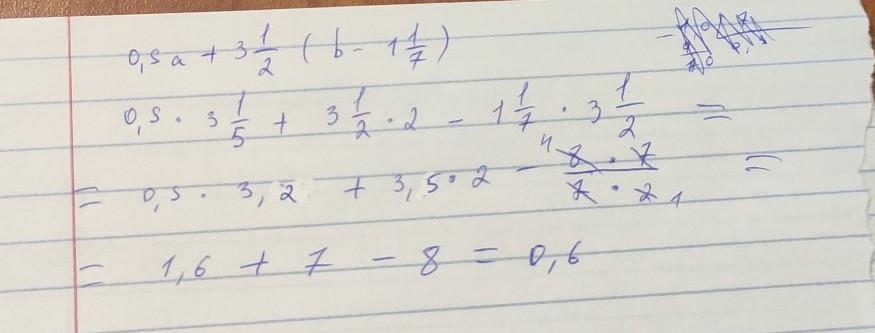 0,5a + 3 1/2 ( b - 1 1/7 )
0,5 · 3 1/5 + 3 1/2 · 2 - 1 1/7 · 3 1/2 =
= 0,5 · 3,2 + 3,5 · 2 - 4 8 · 7 / 7 · 2 1 =
= 1,6 + 7 - 8 = 0,6